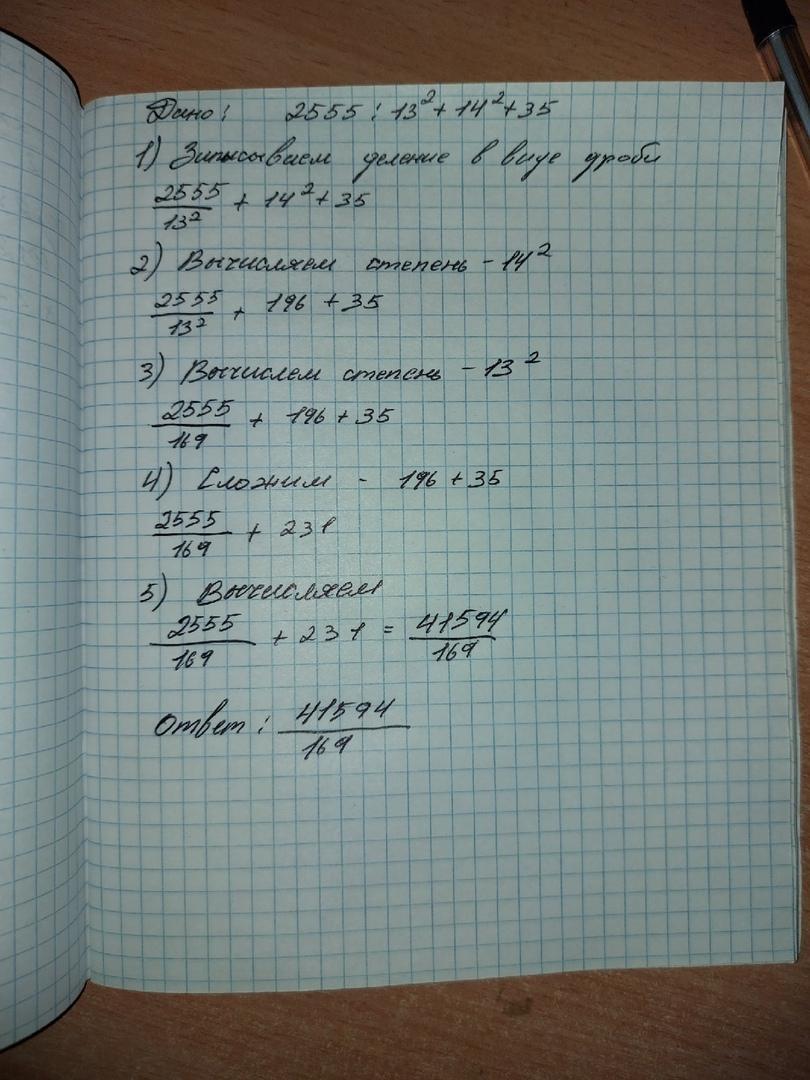 Дано: 2555 : 13² + 14² + 35
1) Записываем деление в виде дроби
2555/13² + 14² + 35
2) Вычисляем степень - 14²
2555/13² + 196 + 35
3) Вычислем степень - 13²
2555/169 + 196 + 35
4) Сложим - 196 + 35
2555/169 + 231
5) Вычисляем
2555/169 + 231 = 41594/169
Ответ: 41594/169